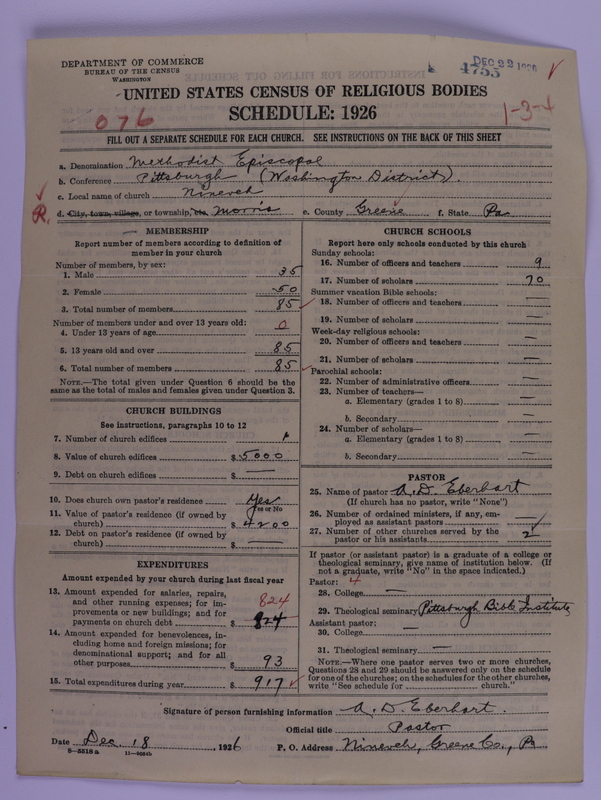 DEPARTMENT OF COMMERCE
BUREAU OF THE CENSUS
WASHINGTON
4755
DEC 22 1926
UNITED STATES CENSUS OF RELIGIOUS BODIES
SCHEDULE: 1926
076
1-3-4
FILL OUT A SEPARATE SCHEDULE FOR EACH CHURCH. SEE INSTRUCTIONS ON THE BACK OF THIS SHEET
a. Denomination Methodist Episcopal
b. Conference Pittsburgh (Washington District).
c. Local name of church Nineveh
R. d. City, town, village, or township, etc. Morris e. County Greene f. State Pa
MEMBERSHIP
Report number of members according to definition of
member in your church
Number of members, by sex:
1. Male 35
2. Female 50
3. Total number of members 85
Number of members under and over 13 years old:
4. Under 13 years of age 0
5. 13 years old and over 85
6. Total number of members 85
NOTE.—The total given under Question 6 should be the
same as the total of males and females given under Question 3.
CHURCH BUILDINGS
See instructions, paragraphs 10 to 12
7. Number of church edifices 1
8. Value of church edifices $ 5000
9. Debt on church edifices $ —
10. Does church own pastor's residence Yes
Yes or No
11. Value of pastor's residence (if owned by
church) $ 4200
12. Debt on pastor's residence (if owned by
church) $ —
EXPENDITURES
Amount expended by your church during last fiscal year
13. Amount expended for salaries, repairs,
and other running expenses; for im-
provements or new buildings; and for
payments on church debt $ 824
824
14. Amount expended for benevolences, in-
cluding home and foreign missions; for
denominational support; and for all
other purposes $ 93
15. Total expenditures during year $ 917
CHURCH SCHOOLS
Report here only schools conducted by this church
Sunday schools:
16. Number of officers and teachers 9
17. Number of scholars 70
Summer vacation Bible schools:
18. Number of officers and teachers —
19. Number of scholars —
Week-day religious schools:
20. Number of officers and teachers —
21. Number of scholars —
Parochial schools:
22. Number of administrative officers —
23. Number of teachers—
a. Elementary (grades 1 to 8) —
b. Secondary —
24. Number of scholars—
a. Elementary (grades 1 to 8) —
b. Secondary —
PASTOR
25. Name of pastor A. D. Eberhart
(If church has no pastor, write "None")
26. Number of ordained ministers, if any, em-
ployed as assistant pastors —
27. Number of other churches served by the
pastor or his assistants 2
If pastor (or assistant pastor) is a graduate of a college or
theological seminary, give name of institution below. (If
not a graduate, write "No" in the space indicated.)
Pastor: 4
28. College —
29. Theological seminary Pittsburgh Bible Institute
Assistant pastor:
30. College —
31. Theological seminary —
NOTE.—Where one pastor serves two or more churches,
Questions 28 and 29 should be answered only on the schedule
for one of the churches; on the schedules for the other churches,
write "See schedule for church."
Signature of person furnishing information A. D. Eberhart.
Official title Pastor
Date Dec. 18, 1926 P. O. Address Nineveh, Greene Co., Pa
8—5518 a